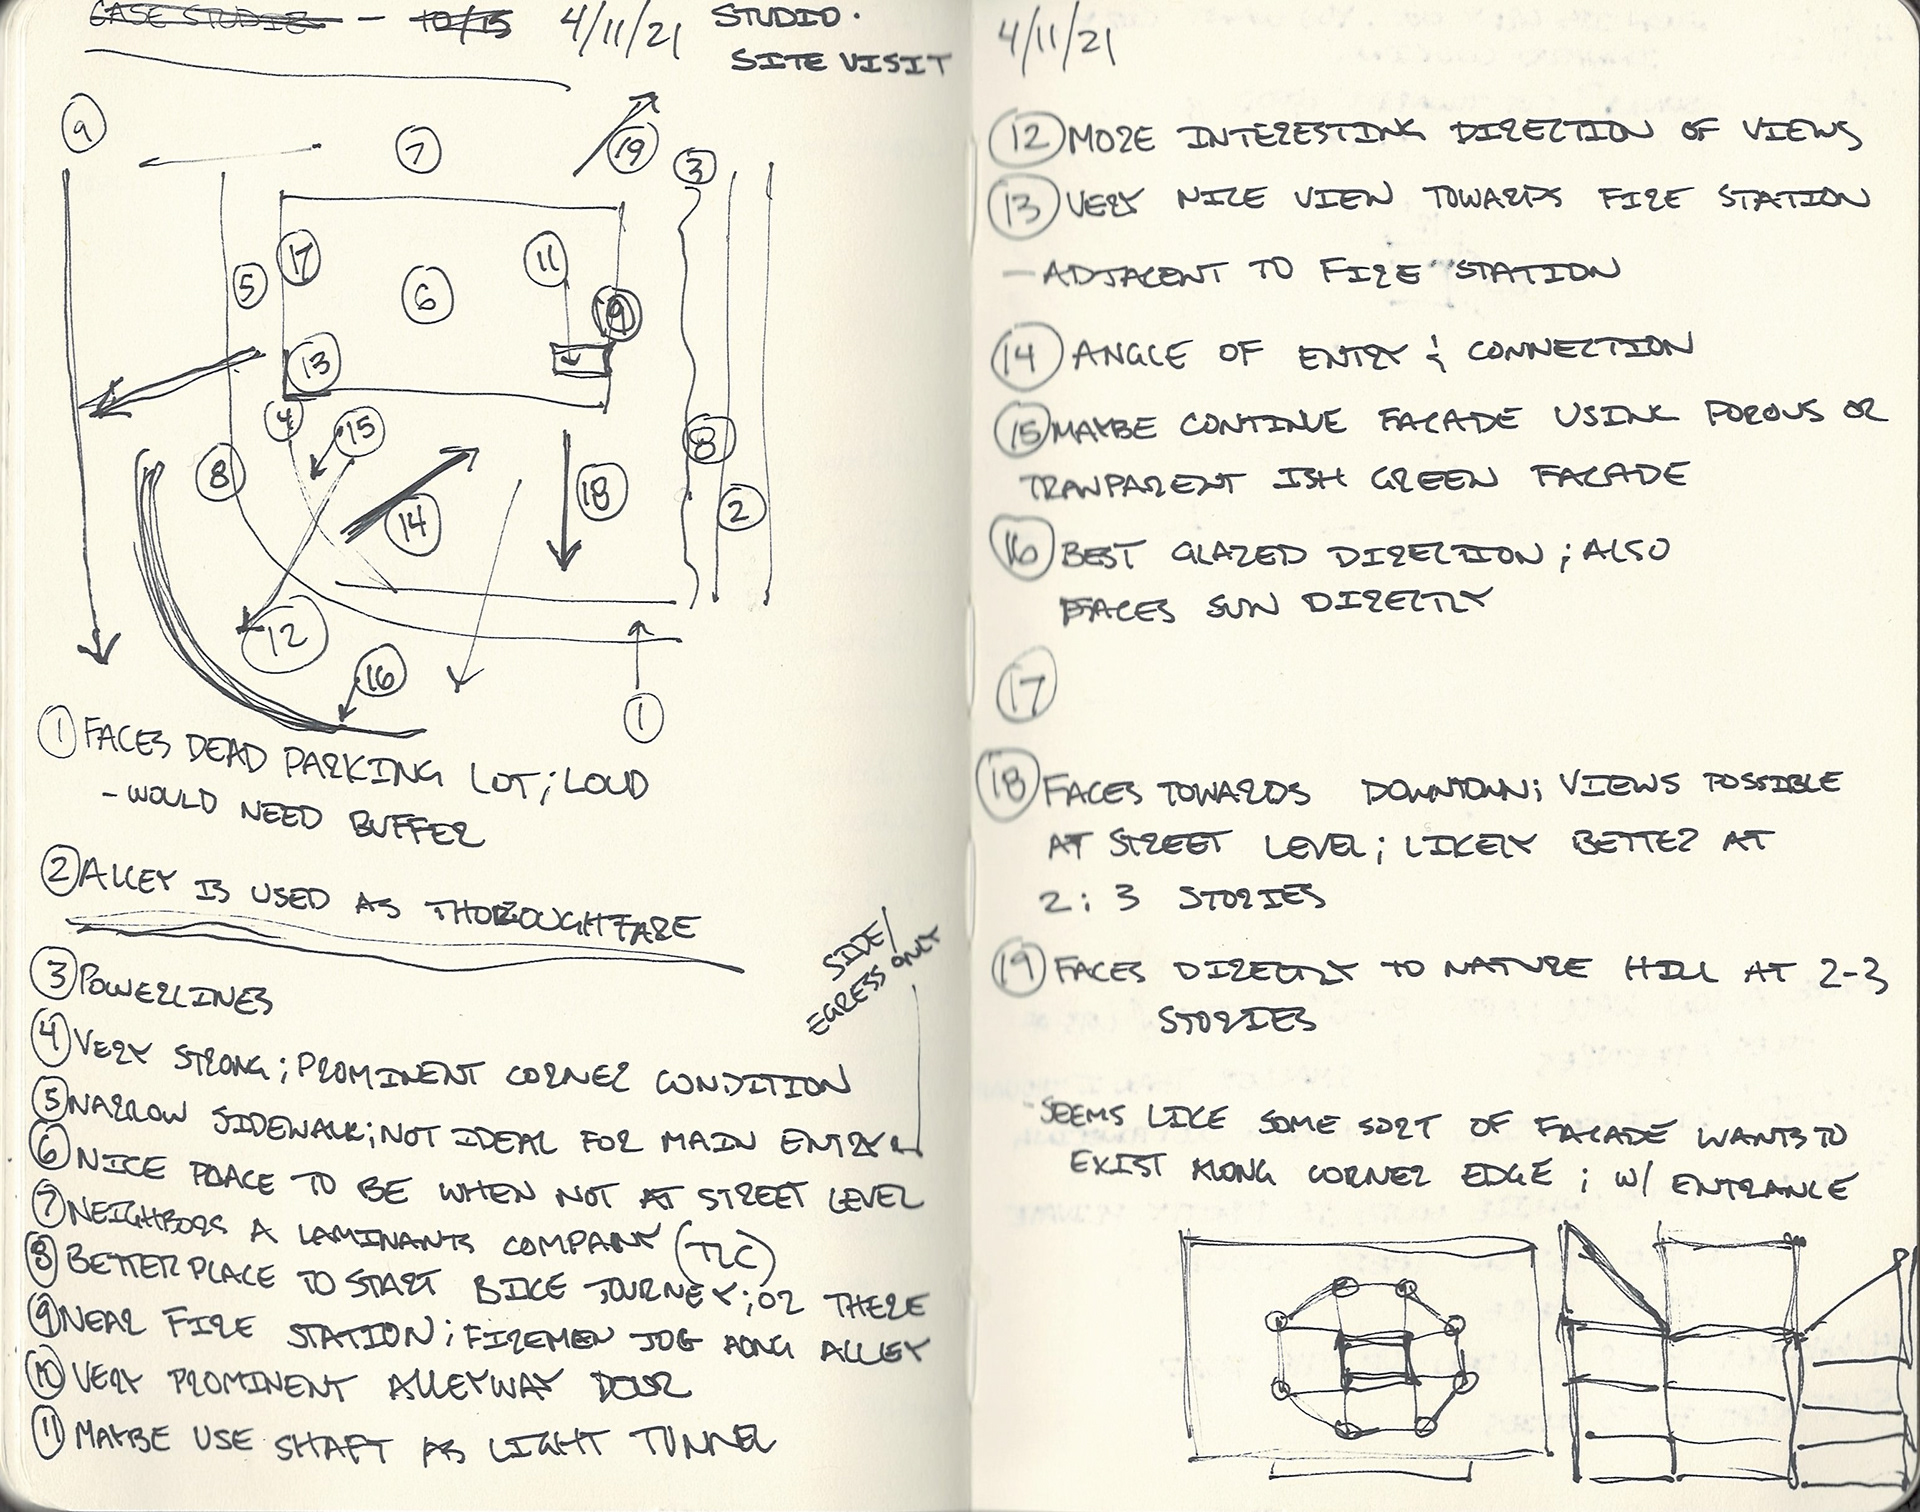 CASE STUDIE - 10/15 4/11/21 STUDIO.
SITE VISIT
9
7
19
3
17
5
6
11
19
13
4
15
8
8
18
14
2
12
16
1
① FACES DEAD PARKING LOT; LOUD
- WOULD NEED BUFFER
② ALLEY IS USED AS THOROUGHTFARE
③ POWERLINES
SIDE/
EGRESS ONLY
④ VERY STRONG; PROMINENT CORNER CONDITION
⑤ NARROW SIDEWALK; NOT IDEAL FOR MAIN ENTRY
⑥ NICE PLACE TO BE WHEN NOT AT STREET LEVEL
⑦ NEIGHBORS A LAMINANTS COMPANY (TLC)
⑧ BETTER PLACE TO START BIKE JOURNEY; OR THERE
⑨ NEAR FIRE STATION; FIREMEN JOG AONG ALLEY
⑩ VERY PROMINENT ALLEYWAY DOOR
⑪ MAYBE USE SHAFT AS LIGHT TUNNEL
4/11/21
⑫ MORE INTERESTING DIRECTION OF VIEWS
⑬ VERY NICE VIEW TOWARDS FIRE STATION
- ADJACENT TO FIRE STATION
⑭ ANGLE OF ENTRY & CONNECTION
⑮ MAYBE CONTINUE FACADE USING POROUS OR
TRANPARENT ISH GREEN FACADE
⑯ BEST GLAZED DIRECTION; ALSO
FACES SUN DIRECTLY
⑰
⑱ FACES TOWARDS DOWNTOWN; VIEWS POSSIBLE
AT STREET LEVEL; LIKELY BETTER AT
2; 3 STORIES
⑲ FACES DIRECTLY TO NATURE HILL AT 2-3
STORIES
- SEEMS LIKE SOME SORT OF FACADE WANTS TO
EXIST ALONG CORNER EDGE; W/ ENTRANCE